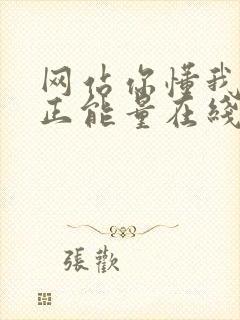 网估你懂我
正能量在綫
張歡